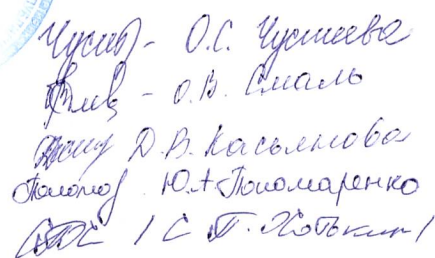 О.С. Чустеева
- О.В. Смаль
Д.В. Касьянова
Ю.А. Пономаренко
/ С П. Хотькин /